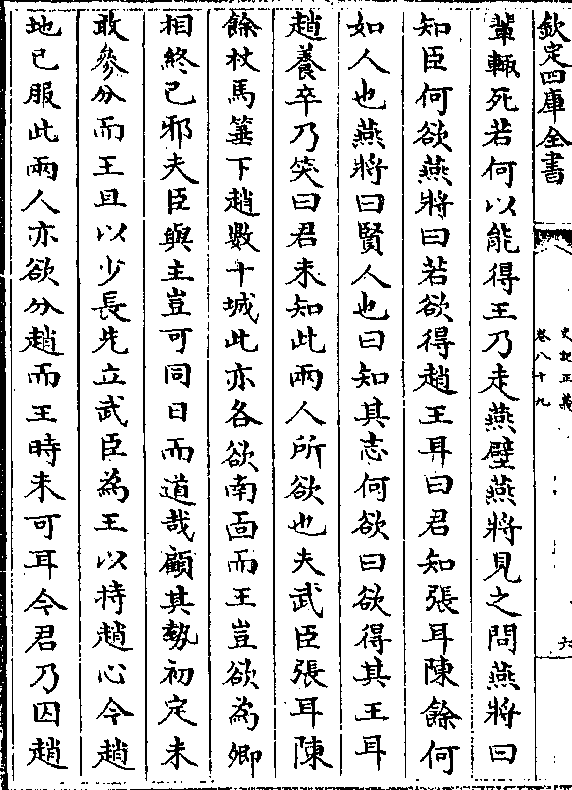 欽定四庫全書
史記正義
卷八十九
六
輩輙死若何以能得王乃走燕壁燕將見之問燕將曰
知臣何欲燕將曰若欲得趙王耳曰君知張耳陳餘何
如人也燕將曰賢人也曰知其志何欲曰欲得其王耳
趙養卒乃笑曰君未知此兩人所欲也夫武臣張耳陳
餘杖馬箠下趙數十城此亦各欲南面而王豈欲為卿
相終己邪夫臣與主豈可同日而道哉顧其勢初定未
敢參分而王且以少長先立武臣為王以持趙心今趙
地已服此兩人亦欲分趙而王時未可耳今君乃囚趙